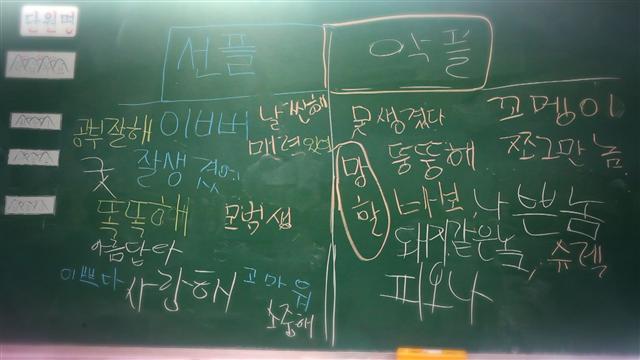 단원명
선플
악플
공부잘해
이뻐
날씬해
매력있다
굿
잘생겼어
똑똑해
모범생
아름답다
이쁘다
사랑해
고마워
소중해
못생겼다
꼬멩이
뚱뚱해
쪼그만 놈
망한
바보, 나쁜놈
돼지같은놈, 슈렉
피오나